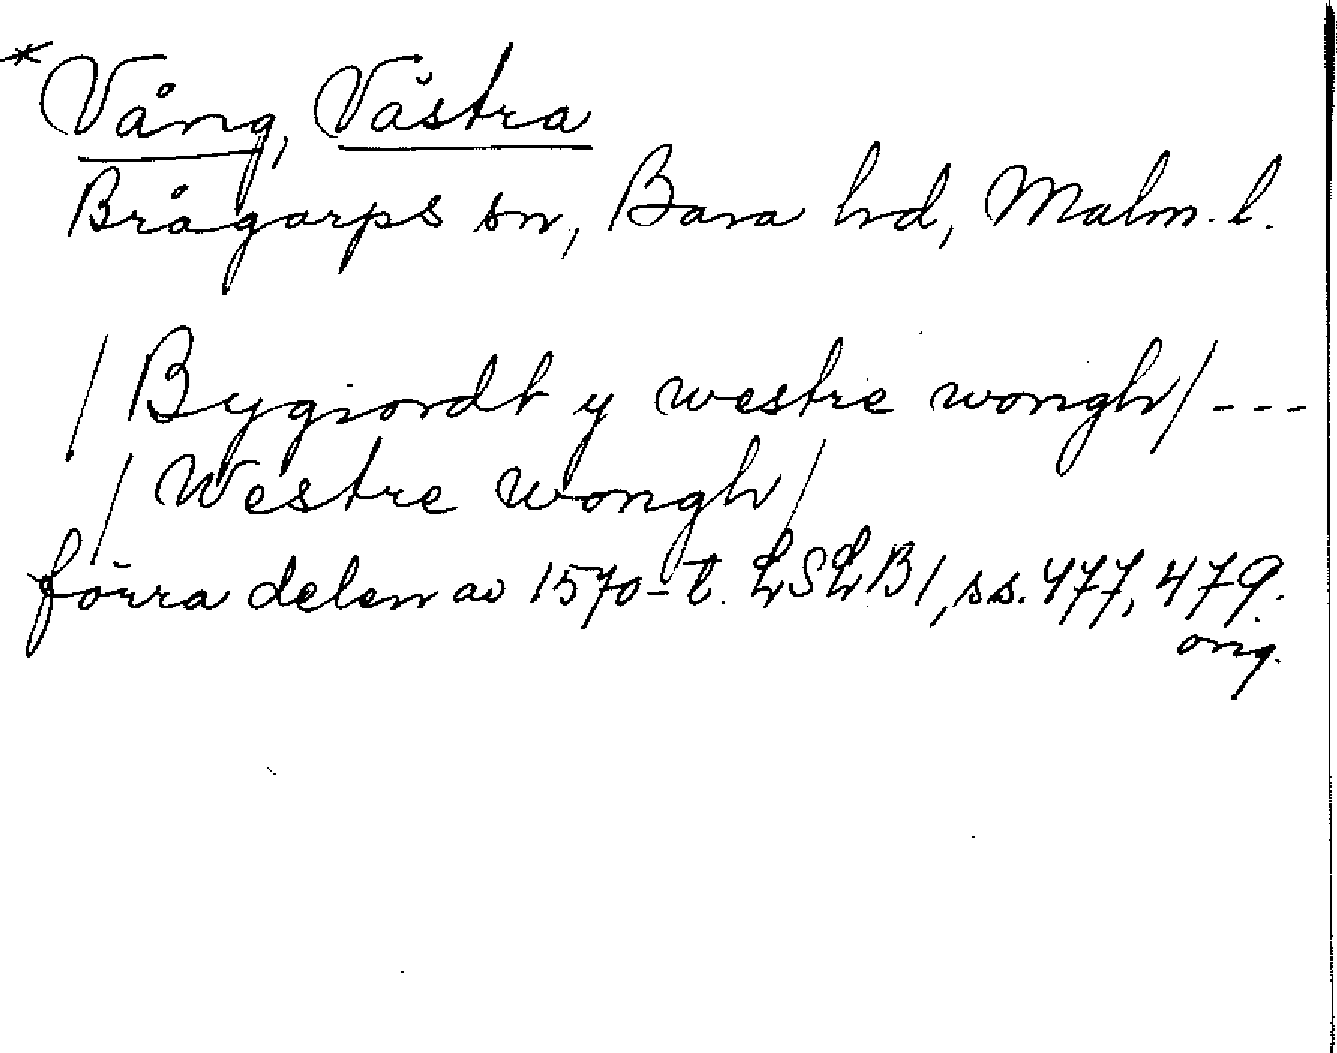 *Vång, Västra
Brågarps sn, Bara hd, Malm. l.
/Bygiordt y westre wongh/ ---
/Westre wongh/
förra delen av 1570-t. LSLB1, ss. 477, 479.
orig.